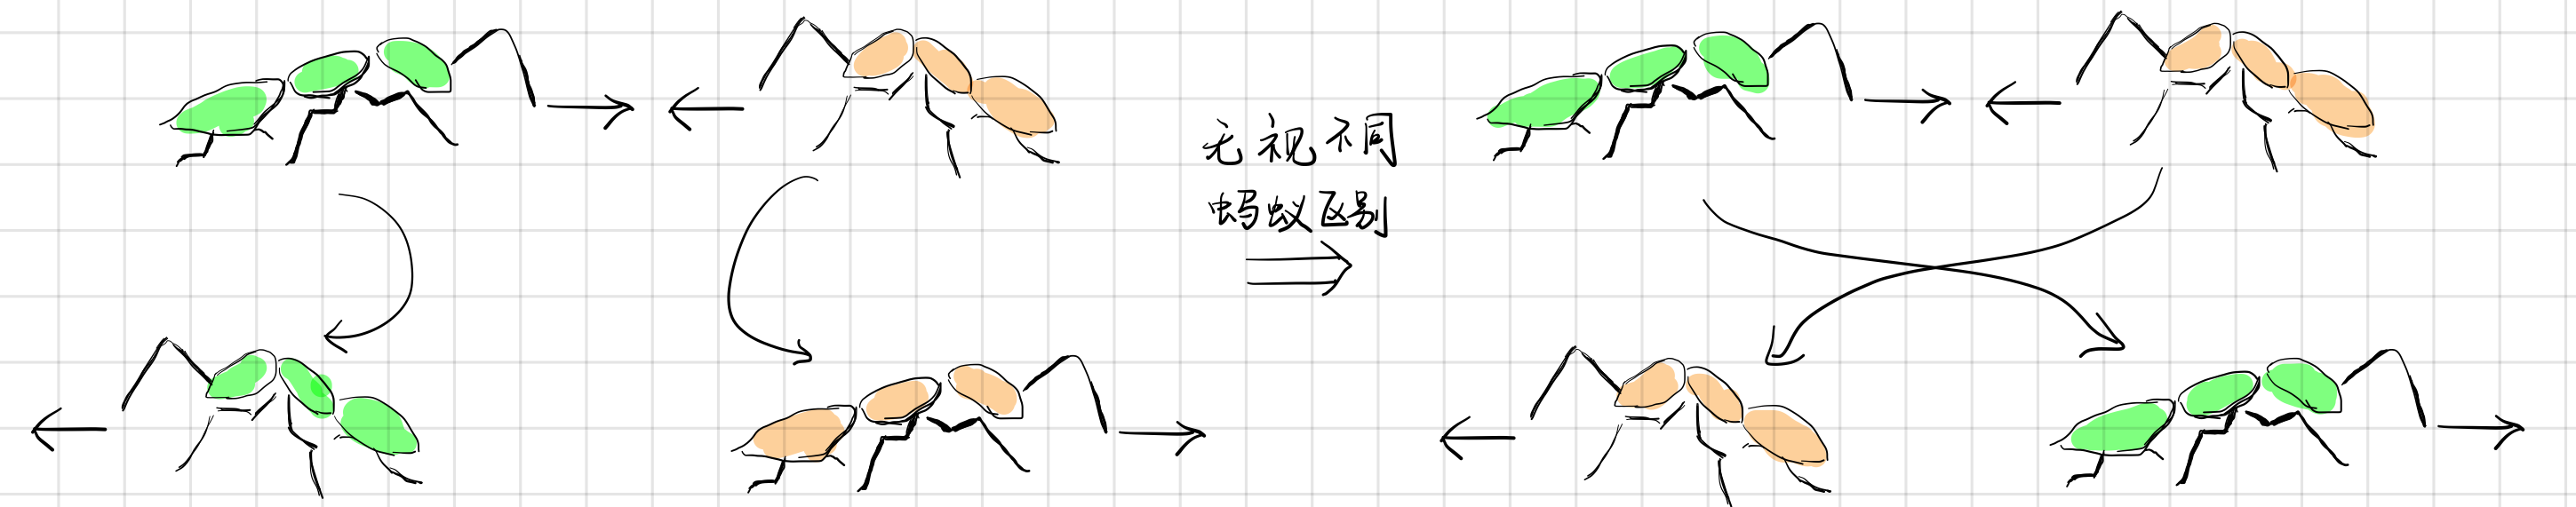 无视不同
蚂蚁区别